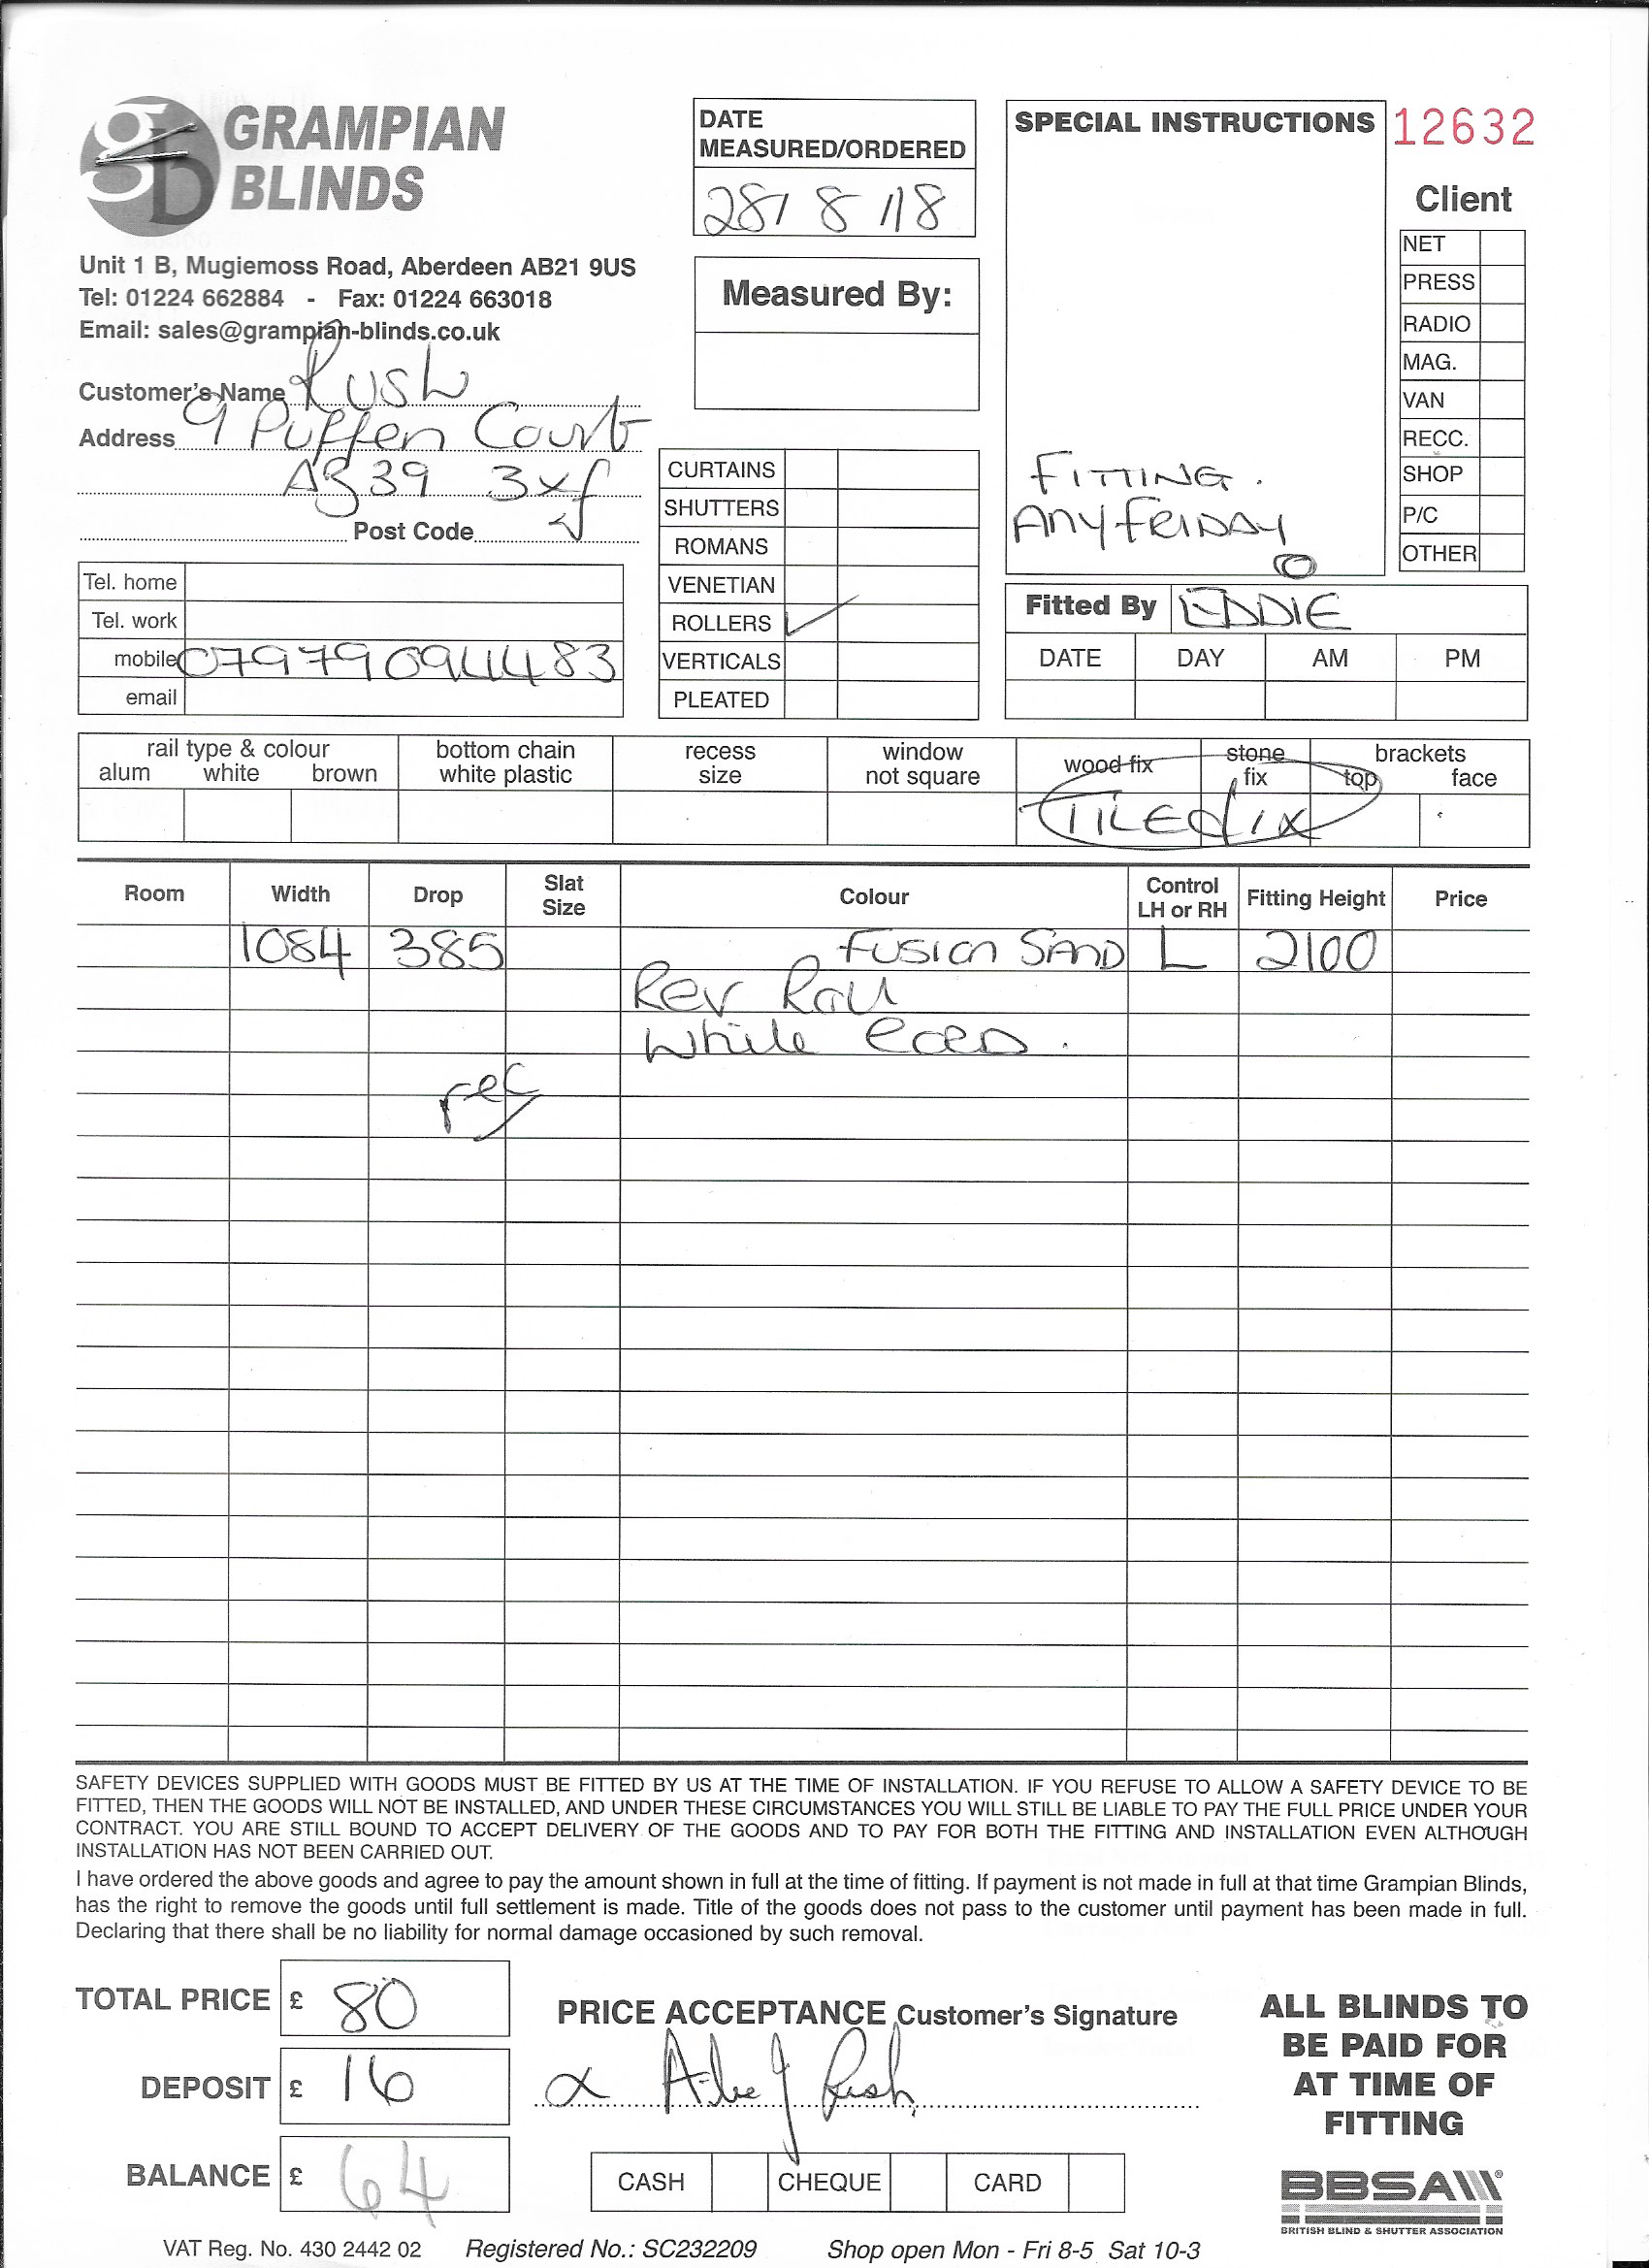 GRAMPIAN
BLINDS
Unit 1 B, Mugiemoss Road, Aberdeen AB21 9US
Tel: 01224 662884 - Fax: 01224 663018
Email: sales@grampian-blinds.co.uk
Customer's Name Rush
Address 9 Puffen Court
AB39 3xf
Post Code
DATE
MEASURED/ORDERED
28/8/18
Measured By:
SPECIAL INSTRUCTIONS
FITTING.
ANY FRIDAY
12632
Client
NET
PRESS
RADIO
MAG.
VAN
RECC.
SHOP
P/C
OTHER
Tel. home
Tel. work
mobile 07979094483
email
CURTAINS
SHUTTERS
ROMANS
VENETIAN
ROLLERS ✓
VERTICALS
PLEATED
Fitted By EDDIE
DATE DAY AM PM
rail type & colour
alum white brown
bottom chain
white plastic
recess
size
window
not square
wood fix
stone
fix
brackets
top face
TILE fix
Room Width Drop Slat Size Colour Control LH or RH Fitting Height Price
1084 385 Fusion SAND L 2100
Rev Roll
White
rec
SAFETY DEVICES SUPPLIED WITH GOODS MUST BE FITTED BY US AT THE TIME OF INSTALLATION. IF YOU REFUSE TO ALLOW A SAFETY DEVICE TO BE
FITTED, THEN THE GOODS WILL NOT BE INSTALLED, AND UNDER THESE CIRCUMSTANCES YOU WILL STILL BE LIABLE TO PAY THE FULL PRICE UNDER YOUR
CONTRACT. YOU ARE STILL BOUND TO ACCEPT DELIVERY OF THE GOODS AND TO PAY FOR BOTH THE FITTING AND INSTALLATION EVEN ALTHOUGH
INSTALLATION HAS NOT BEEN CARRIED OUT.
I have ordered the above goods and agree to pay the amount shown in full at the time of fitting. If payment is not made in full at that time Grampian Blinds,
has the right to remove the goods until full settlement is made. Title of the goods does not pass to the customer until payment has been made in full.
Declaring that there shall be no liability for normal damage occasioned by such removal.
TOTAL PRICE £ 80
DEPOSIT £ 16
BALANCE £ 64
PRICE ACCEPTANCE Customer's Signature
x Rush
CASH CHEQUE CARD
ALL BLINDS TO
BE PAID FOR
AT TIME OF
FITTING
BBSA
BRITISH BLIND & SHUTTER ASSOCIATION
VAT Reg. No. 430 2442 02 Registered No.: SC232209 Shop open Mon - Fri 8-5 Sat 10-3